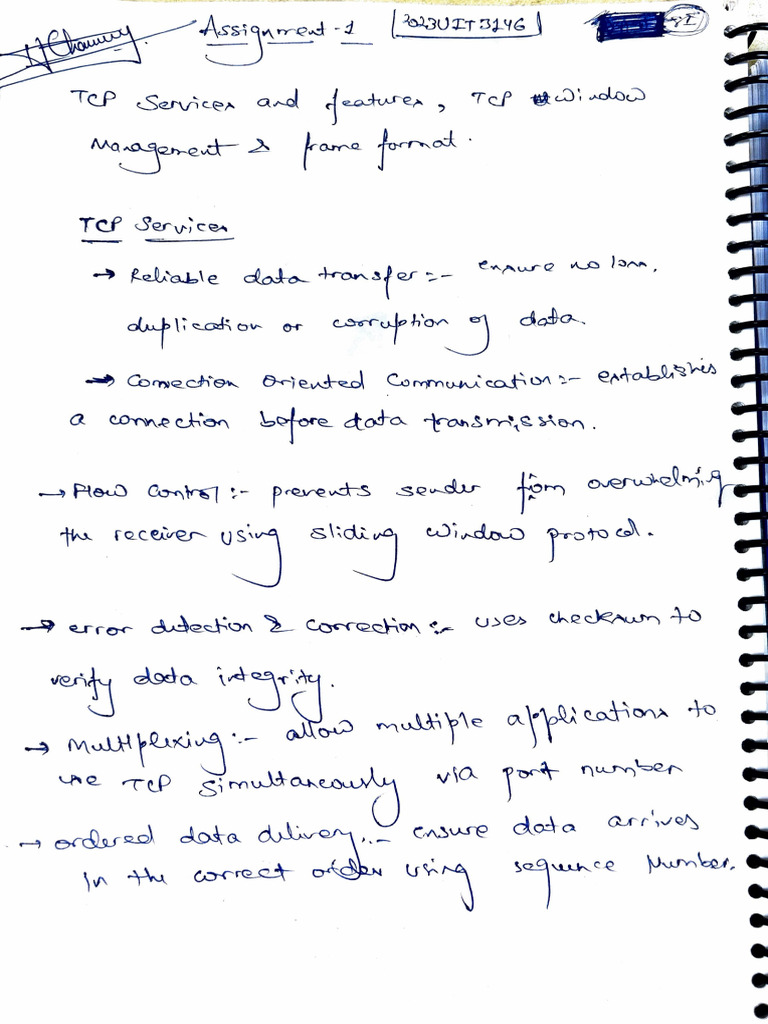 Assignment-1 2023UIT3146
TCP Services and features, TCP Window
Management & frame format.
TCP Services
→ Reliable data transfer:- ensure no loss,
duplication or corruption of data.
→ Connection Oriented Communication:- establishes
a connection before data transmission.
→ Flow control:- prevents sender from overwhelming
the receiver using sliding window protocol.
→ error detection & correction:- uses checksum to
verify data integrity.
→ Multiplexing:- allow multiple applications to
use TCP simultaneously via port number
→ ordered data delivery:- ensure data arrives
in the correct order using sequence Number.